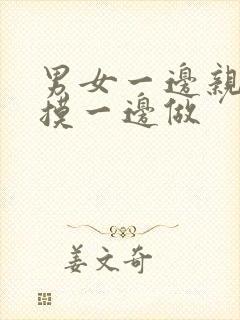 男女一邊親
摸一邊做
姜文奇